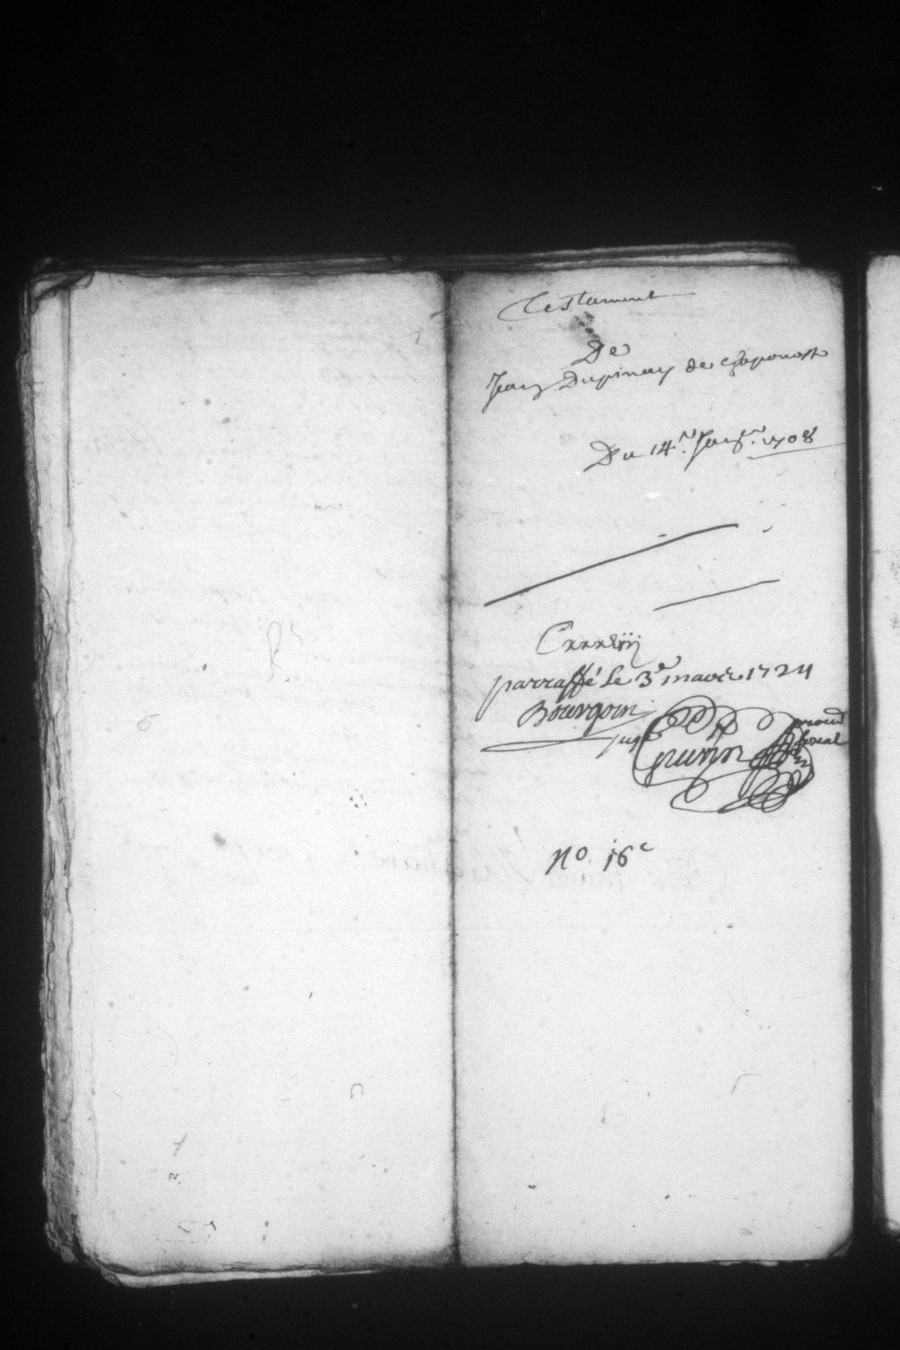 Testament
De
Jean Dupinay de chaponost
Du 14.e Jan.er 1708
parraffé le 3e mars 1724
Bourgoin
juge
procur
fiscal
No 16e